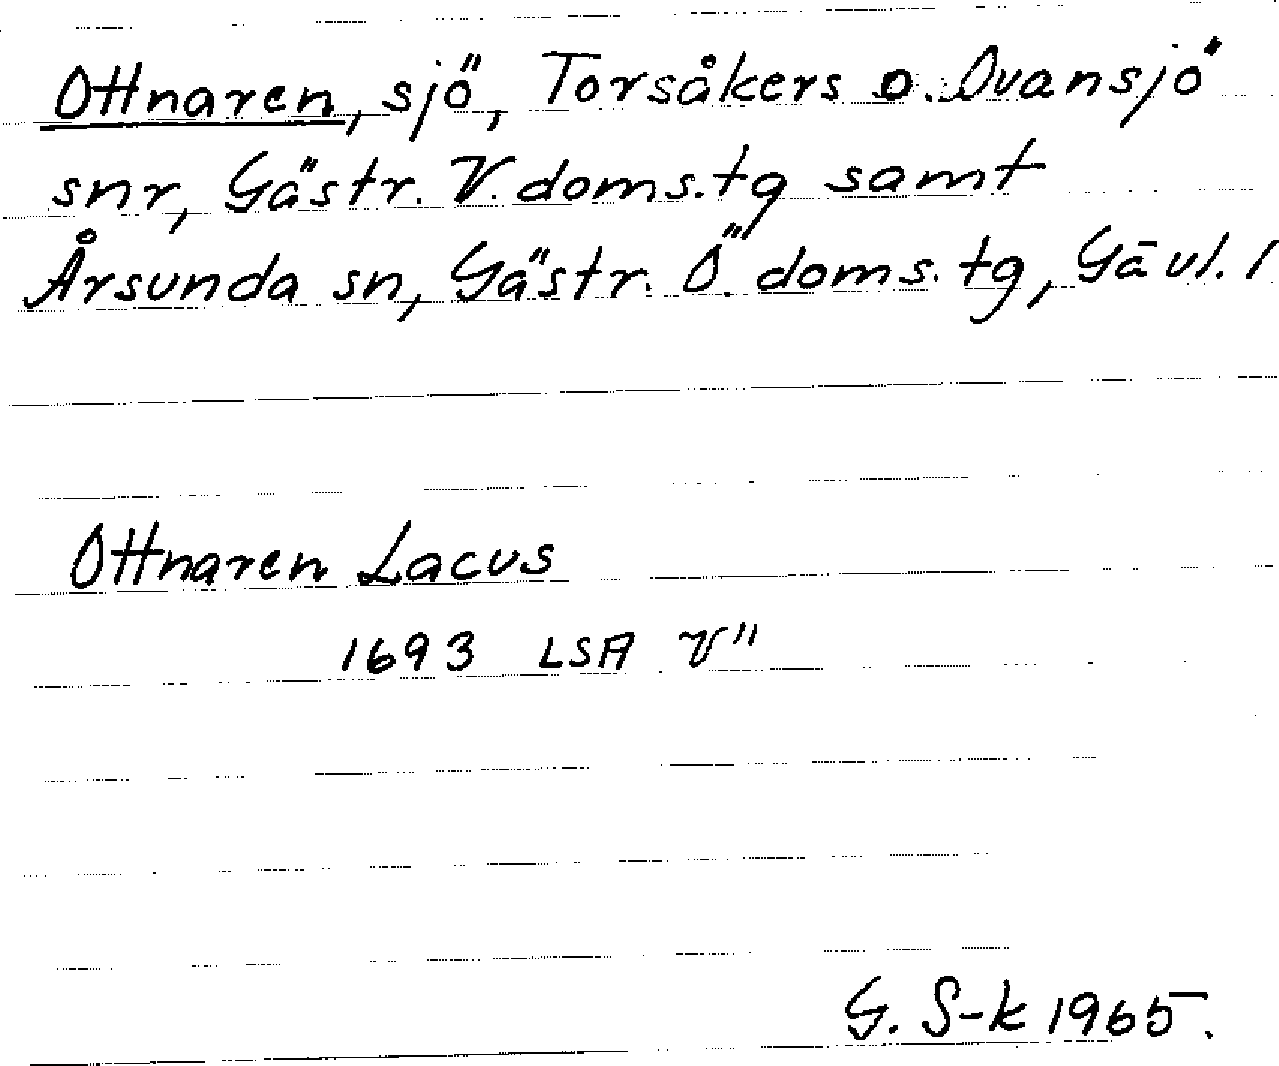 Ottnaren, sjö, Torsåkers o. Ovansjö
snr, Gästr. V. doms.tg samt
Årsunda sn, Gästr. Ö. doms. tg, Gävl. l
Ottnaren Lacus
1693 LSA V"
G. S-k 1965.